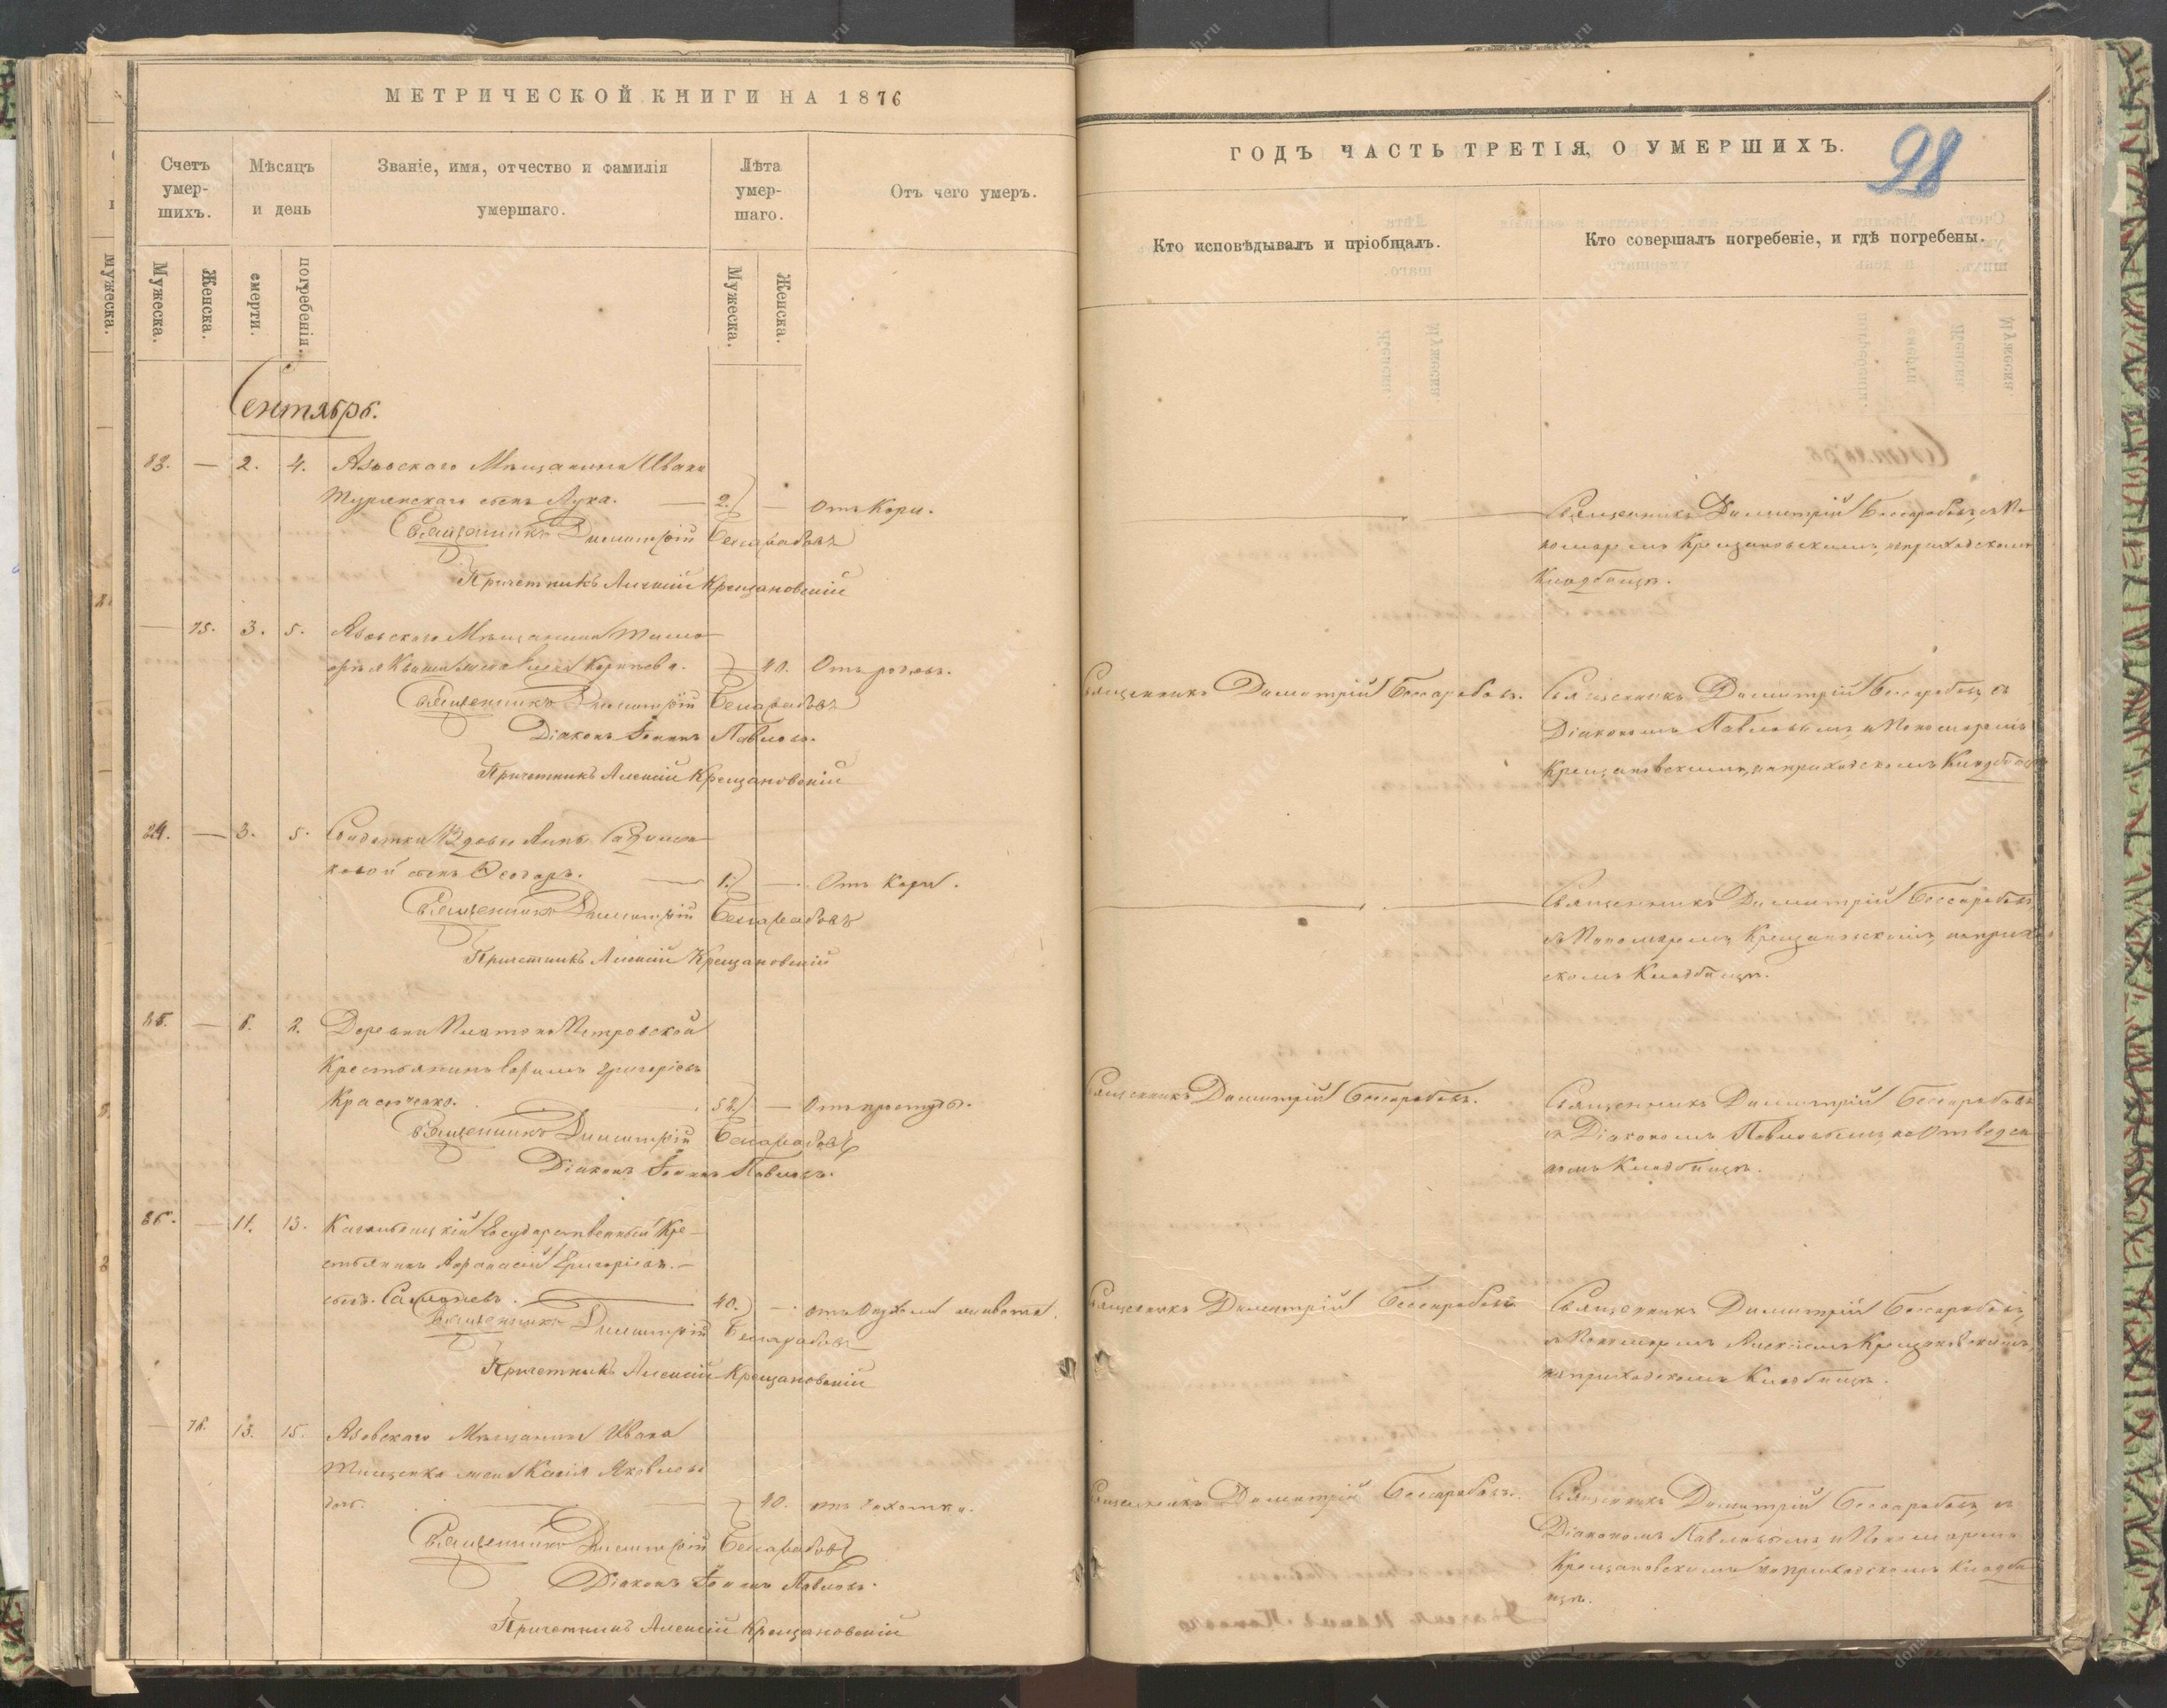 МЕТРИЧЕСКОЙ КНИГИ НА 1876
Счетъ умер-шихъ.
Мѣсяцъ и день
Званіе, имя, отчество и фамилія умершаго.
Лѣта умер-шаго.
Отъ чего умеръ.
Мужеска.
Женска.
смерти.
погребенія.
Мужеска.
Женска.
Сентябрь.
83. — 2. 4. Азовскаго Мѣщанина Ивана
сынъ Лука. — 2. — отъ Кори.
Священникъ Димитрій Бессарабовъ
Причетникъ Алексій Крещановскій
— 75. 3. 5. Азовскаго Мѣщанина
жена — 40. Отъ родовъ.
Священникъ Димитрій Бессарабовъ
Діаконъ Іоаннъ Павловъ.
Причетникъ Алексій Крещановскій
84. — 3. 5. Солдатки Вдовы Анны
сынъ Ѳеодоръ. — 1. — Отъ Кори.
Священникъ Димитрій Бессарабовъ
Причетникъ Алексій Крещановскій
85. — 6. 8. Деревни Платоно Петровской
Крестьянинъ Григорьевъ
52. — Отъ простуды.
Священникъ Димитрій Бессарабовъ
Діаконъ Іоаннъ Павловъ.
86. — 11. 13. Кагальницкій Государственный Кре-
стьянинъ Аѳанасій Григорьевъ
40. — отъ живота.
Священникъ Димитрій Бессарабовъ
Причетникъ Алексій Крещановскій
— 76. 13. 15. Азовскаго Мѣщанина Ивана
Тищенка жена Яковлева
дочь. — 40. отъ Чахотки.
Священникъ Димитрій Бессарабовъ
Діаконъ Іоаннъ Павловъ.
Причетникъ Алексій Крещановскій
ГОДЪ ЧАСТЬ ТРЕТІЯ, О УМЕРШИХЪ.
98
Кто исповѣдывалъ и пріобщалъ.
Кто совершалъ погребеніе, и гдѣ погребены.
Священникъ Димитрій Бессарабовъ, съ По-
номаремъ Крещановскимъ, на приходскомъ
Кладбищѣ.
Священникъ Димитрій Бессарабовъ.
Священникъ Димитрій Бессарабовъ, съ
Діакономъ Павловымъ и Пономаремъ
Крещановскимъ, на приходскомъ Кладбищѣ
Священникъ Димитрій Бессарабовъ,
съ Пономаремъ Крещановскимъ, на приход-
скомъ Кладбищѣ.
Священникъ Димитрій Бессарабовъ.
Священникъ Димитрій Бессарабовъ
съ Діакономъ Павловымъ, на Отведен-
номъ Кладбищѣ.
Священникъ Димитрій Бессарабовъ
Священникъ Димитрій Бессарабовъ,
съ Пономаремъ Алексіемъ Крещановскимъ,
на приходскомъ Кладбищѣ.
Священникъ Димитрій Бессарабовъ.
Священникъ Димитрій Бессарабовъ, съ
Діакономъ Павловымъ и Пономаремъ
Крещановскимъ на приходскомъ Кладби-
щѣ.